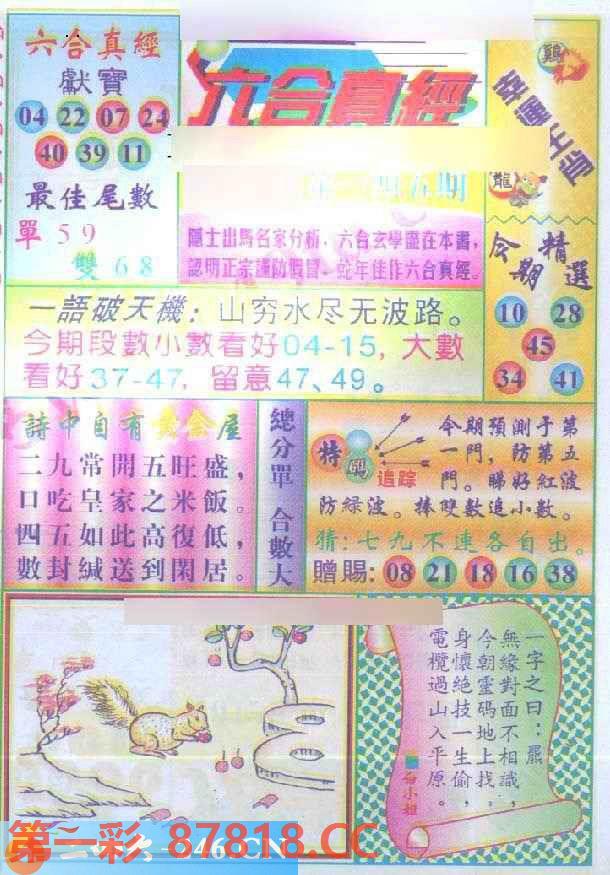 六合真經
獻寶
04 22 07 24
40 39 11
最佳尾數
單 59
雙 68
六合真經
隱士出馬名家分析，六合玄學盡在本書，
認明正宗謹防假冒，蛇年佳作六合真經。
鷄
龍
今期精選
10 28
45
34 41
一語破天機：山穷水尽无波路。
今期段數小數看好04-15，大數
看好37-47，留意47、49。
詩中自有黃金屋
二九常開五旺盛，
日吃皇家之米飯。
四五如此高復低，
數封緘送到閑居。
總分單 合數大
特碼
追踪
今期預測于第
一門，防第五
門。睇好紅波
防綠波。捧雙數追小數。
猜：七九不連各自出。
贈賜：08 21 18 16 38
一字之曰：羆
無緣對面不相識，
今朝靈碼地上找，
身懷絕技一生偷，
電欖過山入平原。
白小姐
第一彩 87818.CC